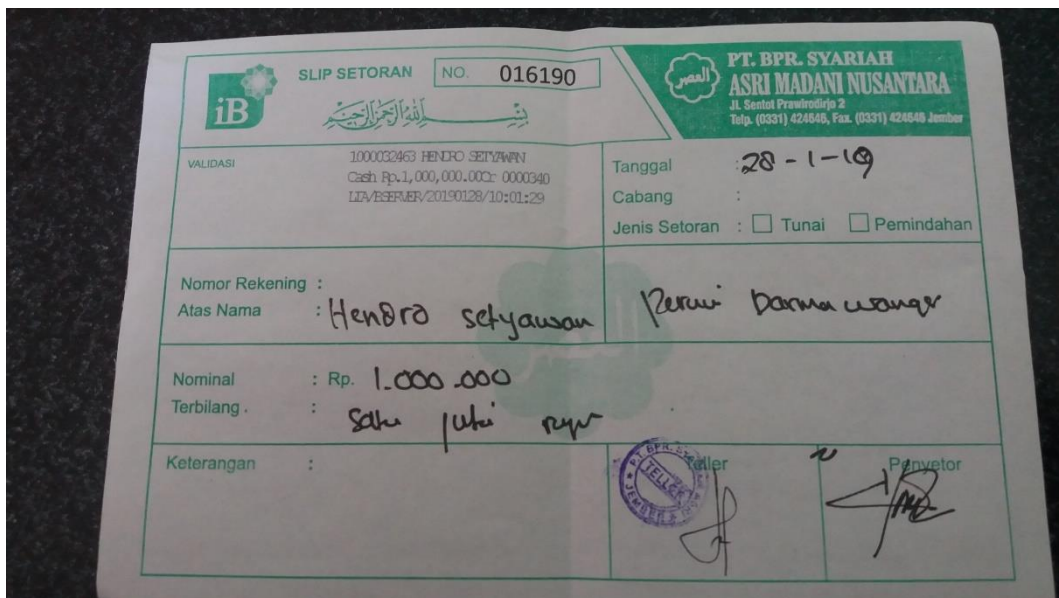 iB
SLIP SETORAN NO. 016190
بِسْمِ اللَّهِ الرَّحْمَٰنِ الرَّحِيمِ
العصر
PT. BPR. SYARIAH
ASRI MADANI NUSANTARA
Jl. Sentot Prawirodirjo 2
Telp. (0331) 424646, Fax. (0331) 424646 Jember
VALIDASI
1000032463 HENDRO SETYAWAN
Cash Rp.1,000,000.00Cr 0000340
LIA/BSERVER/20190128/10:01:29
Tanggal : 28-1-19
Cabang :
Jenis Setoran : Tunai Pemindahan
Nomor Rekening :
Atas Nama : Hendro setyawan
Perum Darmawangsa
Nominal : Rp. 1.000.000
Terbilang . : Satu juta
Keterangan :
Teller
Penyetor
TELLER
JEMBER